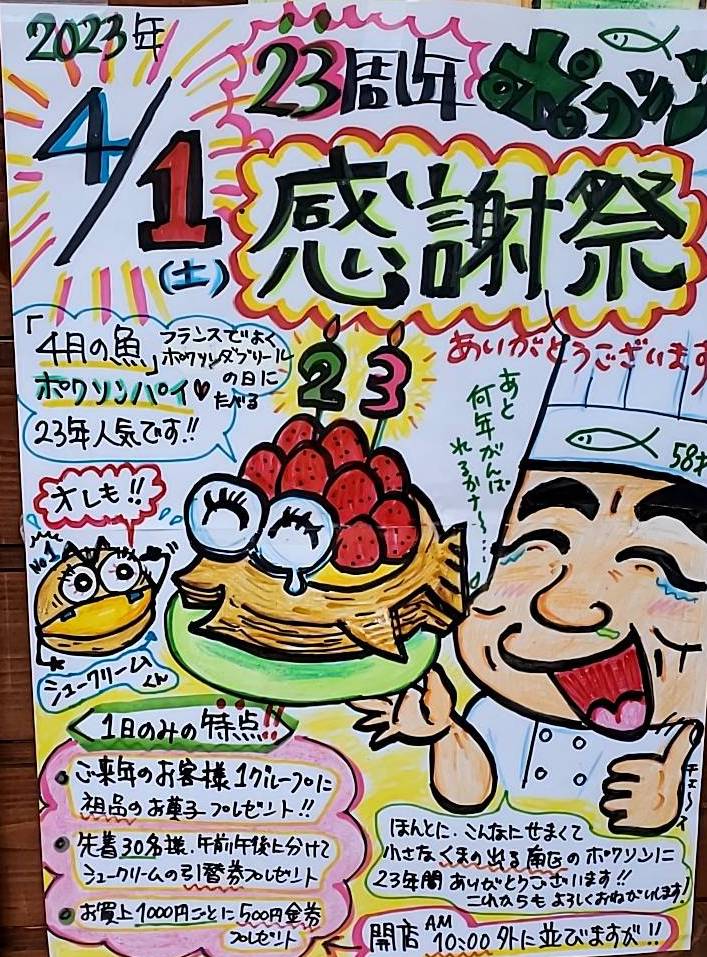 2023年
4/1
(土)
23周年
ポワソン
感謝祭
ありがとうございます
「4月の魚」
フランスでよく
ポワソンダブリール
の日に
たべる
ポワソンパイ♥
23年人気です!!
23
あと
何年がんば
れるかナ〜…
58才
オレも!!
No1
シュークリーム
くん
1日のみの特点!!
ご来年のお客様1グループに
祖品のお菓子プレゼント!!
先着30名様、午前午後に分けて
シュークリームの引替券プレゼント
お買上1000円ごとに500円金券
プレゼント
ほんとに、こんなにせまくて
小さなくまの出る南区のポワソンに
23年間ありがとうございます!!
これからもよろしくおねがいします!
開店AM10:00外に並びますが!!